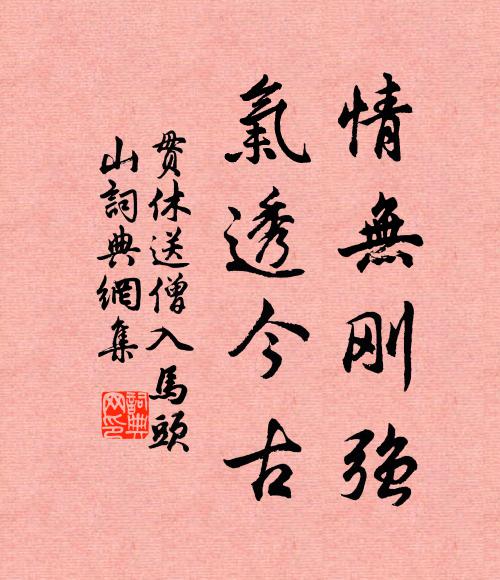 情無刚强
氣透今古
贯休送僧入馬頭
山詞典網集
詞典
网印